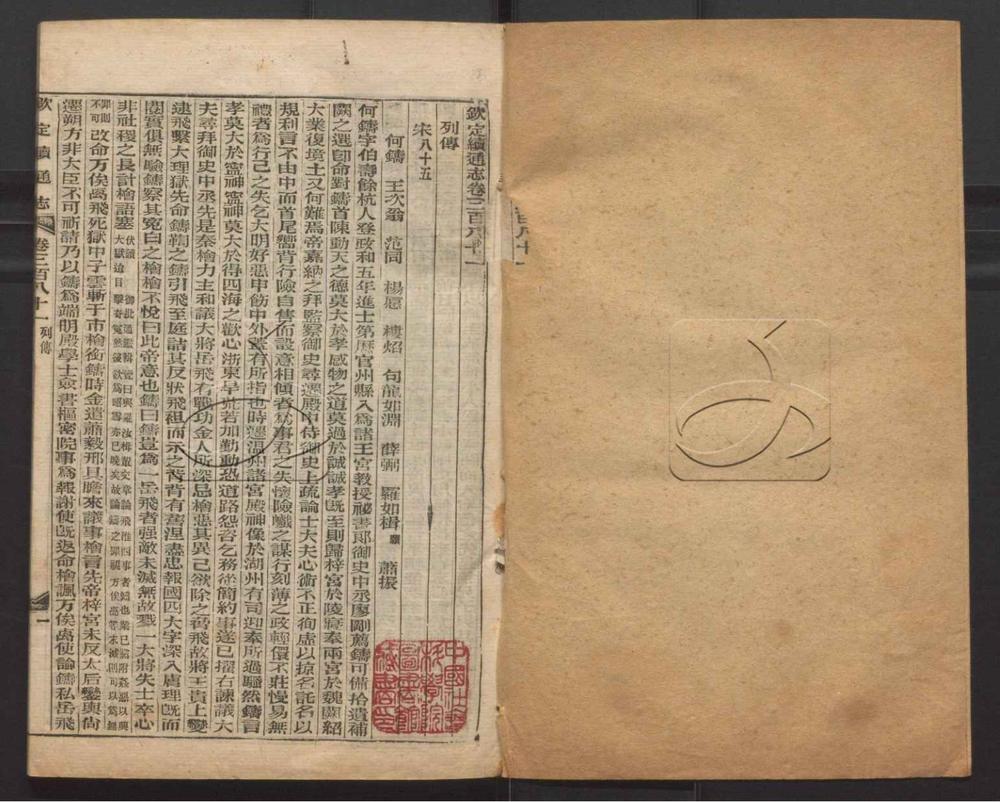 欽定續通志卷三百八十一
列傳
宋八十五
何鑄 王次翁 范同 楊愿 樓炤 句龍如淵 薛弼 羅如楫 蕭振
何鑄字伯壽餘杭人登政和五年進士第歷官州縣入爲諸王宮教授祕書郎御史中丞廖剛薦鑄可備拾遺補
闕之選卽命對鑄首陳動天之德莫大於孝感物之道莫過於誠誠孝旣至則歸梓宮於陵寢奉兩宮於魏闕紹
大業復境土又何難焉帝嘉納之拜監察御史尋遷殿中侍御史上疏論士大夫心術不正徇虛以掠名託名以
規利言不由中而首尾嚮背行險自售而設意相傾者爲事君之失懷險巇之謀行刻薄之政輕儇不莊慢易無
禮者爲行己之失乞大明好惡申飭中外蓋有所指也時遷温州諸宮殿神像於湖州有司迎奉所過騷然鑄言
孝莫大於寧神寧神莫大於得四海之歡心浙東旱荒若加勤動恐道路怨咨乞務從簡約事遂已擢右諫議大
夫尋拜御史中丞先是秦檜力主和議大將岳飛有戰功金人所深忌檜惡其異己欲除之脅飛故將王貴上變
逮飛繫大理獄先命鑄鞫之鑄引飛至庭詰其反狀飛袒而示之背背有舊涅盡忠報國四大字深入膚理旣而
閱實俱無驗鑄察其冤白之檜檜不悅曰此帝意也鑄曰鑄豈爲一岳飛者强敵未滅無故戮一大將失士卒心
非社稷之長計檜語塞
改命万俟卨飛死獄中子雲斬于市檜銜鑄時金遣蕭毅邢具瞻來議事檜言先帝梓宮未反太后鑾輿尚
遷朔方非大臣不可祈請乃以鑄爲端明殿學士簽書樞密院事爲報謝使旣返命檜諷万俟卨使論鑄私岳飛
欽定續通志 卷三百八十一 列傳 一